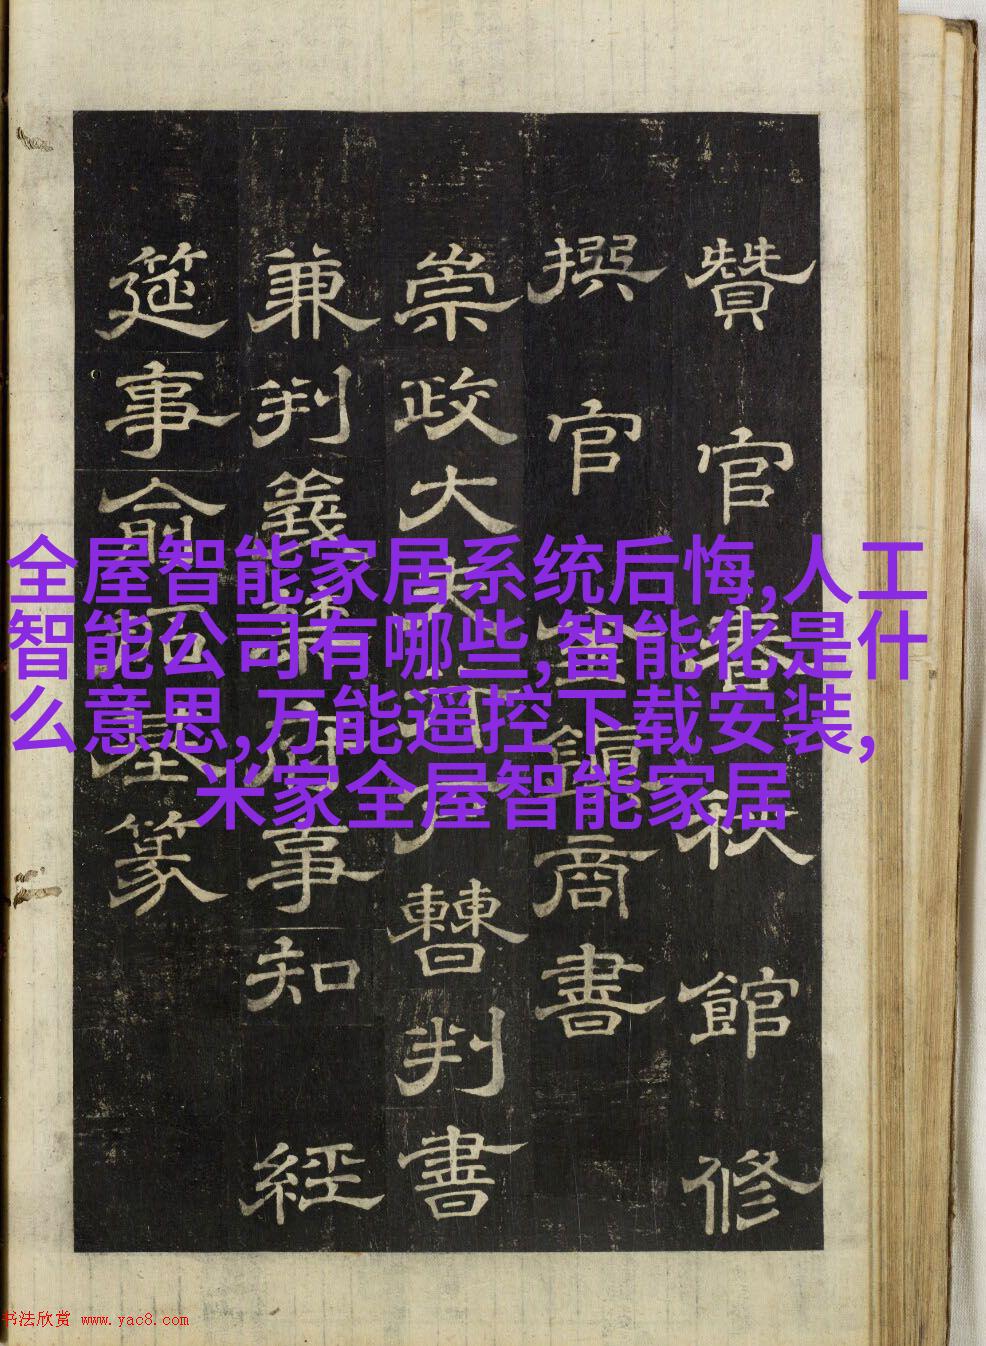 贊官春秋館修
撰官金鎮商書
崇政大夫行戶曹判書
兼判義禁府事知經
筵事俞拓基篆
全屋智能家居系统后悔,人工
智能公司有哪些,智能化是什
么意思,万能遥控下载安装,
米家全屋智能家居
书法欣赏 www.yac8.com